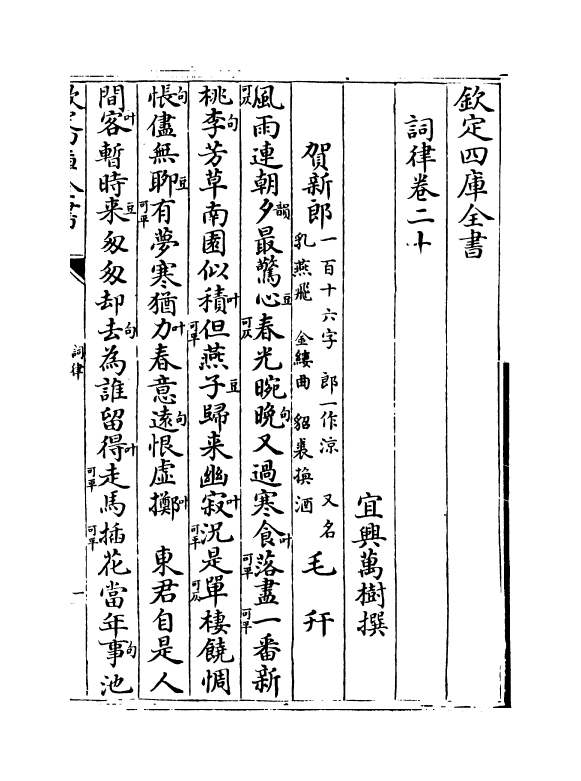 欽定四庫全書
詞律卷二十
宜興萬樹撰
賀新郎 一百十六字 郎一作涼 又名乳燕飛 金縷曲 貂裘換酒 毛幵
風可仄雨連朝夕韻最驚心豆春可仄光晼晚句又過寒食叶落可平盡一可平番新
桃李句芳草南園似積叶但可平燕子豆歸来幽寂叶況可平是單可仄棲饒惆
悵句儘無聊豆有可平夢寒猶力叶春意遠句恨虛擲叶 東君自是人
間客叶暫時来豆匆匆却去句為誰留得叶走可平馬插可平花當年事句池
詞律
一